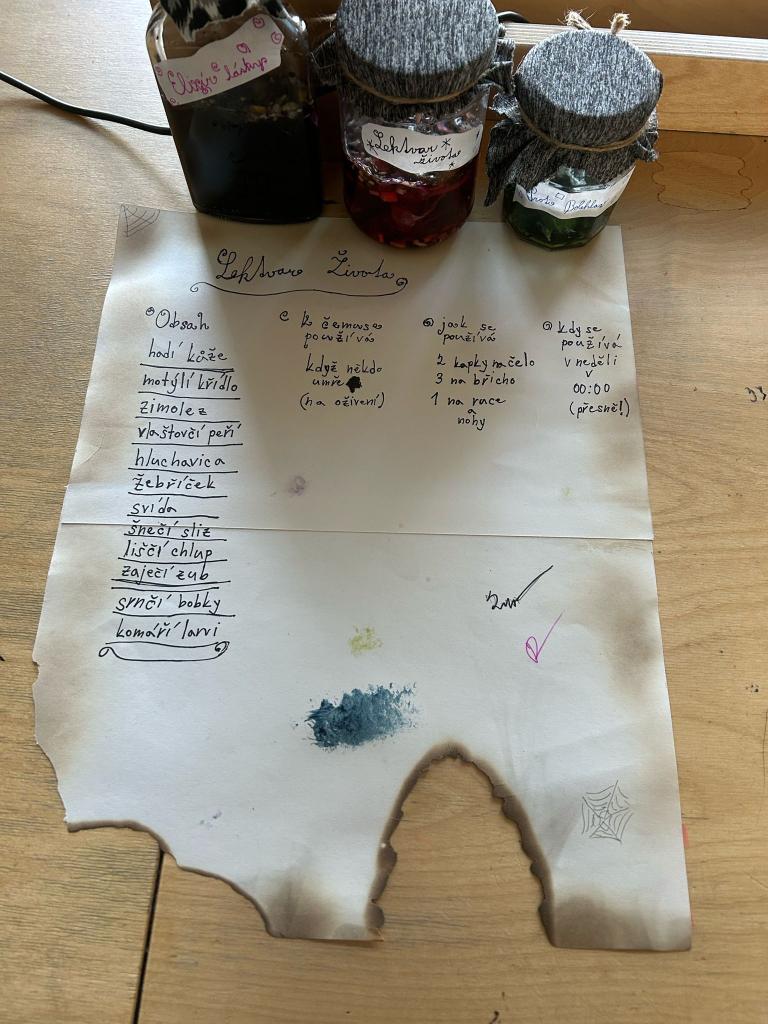 Elixír lásky
*Lektvar*
života
*
Proti Bolehlav
Lektvar Života
Obsah
hadí kůže
motýlí křídlo
zimolez
vlaštovčí peří
hluchavica
žebříček
svída
šnečí sliz
liščí chlup
zaječí zub
srnčí bobky
komáří larvi
K čemu se
používá
když někdo
umře
(na oživení)
jak se
používá
2 kapky na čelo
3 na břicho
1 na ruce
a
nohy
kdy se
používá
v neděli
v
00:00
(přesně!)